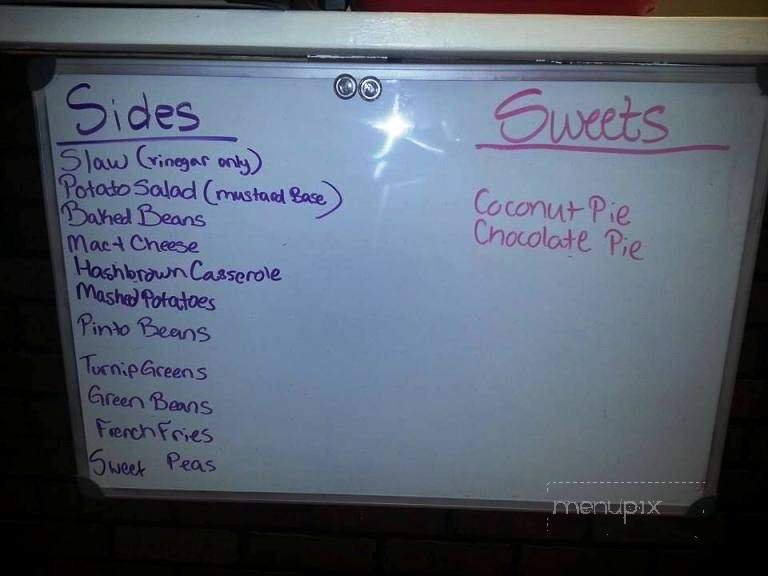 Sides
Slaw (vinegar only)
Potato Salad (mustard Base)
Baked Beans
Mac + Cheese
Hashbrown Casserole
Mashed Potatoes
Pinto Beans
Turnip Greens
Green Beans
French Fries
Sweet Peas
Sweets
Coconut Pie
Chocolate Pie
menupix